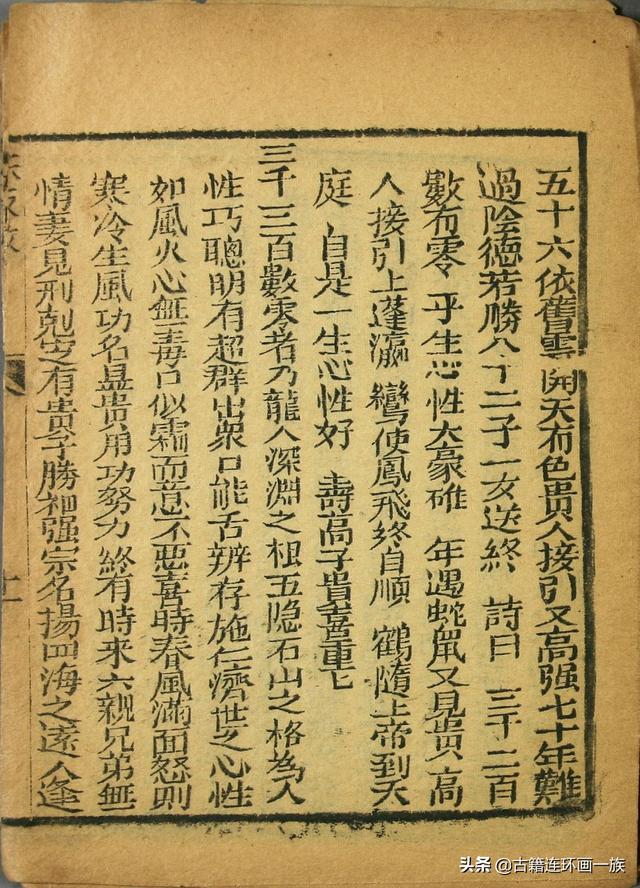 五十六依舊雲開天有色貴人接引又高强七十年難
過陰德若勝八十二子一女送終 詩曰 三千二百
數布零 乎生心性大豪雄 年遇蛇鼠又見貴 高
人接引上蓬瀛 鸞使鳳飛終自順 鶴隨上帝到天
庭 自是一生心性好 壽高子貴喜重七
三千三百數零者乃龍入深淵之根玉隐石山之格為人
性巧聰明有超群出衆口能舌辨存施仁濟世之心性
如風火心無毒口似霜而意不惡喜時春風滿面怒則
寒冷生風功名显貴用功努力終有時來六親兄弟無
情妻見刑剋定有貴子勝祖强宗名揚四海之遠人逢
上
头条 @古籍连环画一族